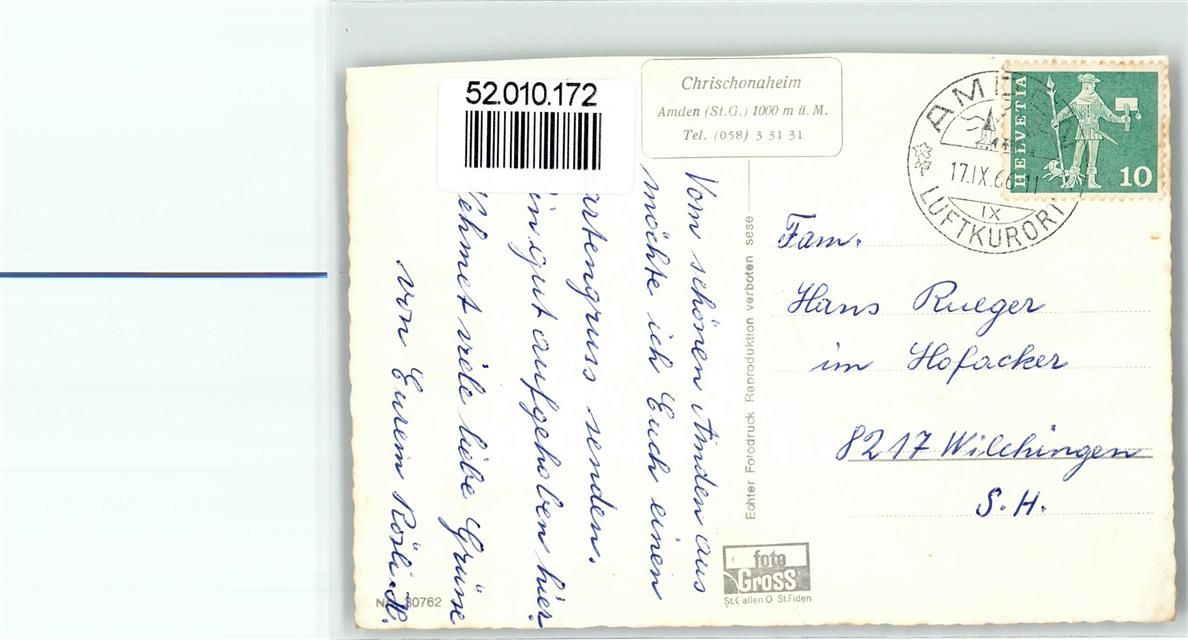 52.010.172
Chrischonaheim
Amden (St.G.) 1000 m ü. M.
Tel. (058) 3 31 31
AM
17.IX.66 11
IX
LUFTKURORT
HELVETIA
10
Vom schönen Amden aus
möchte ich Euch einen
artengruss senden.
in gut aufgehoben hier.
ehmet viele liebe Grüsse
von Eurem Rösli H.
Echter Fotodruck Reproduktion verboten sese
Fam.
Hans Rueger
im Hofacker
8217 Wilchingen
S.H.
foto
Gross
St.Gallen O St.Fiden
30762